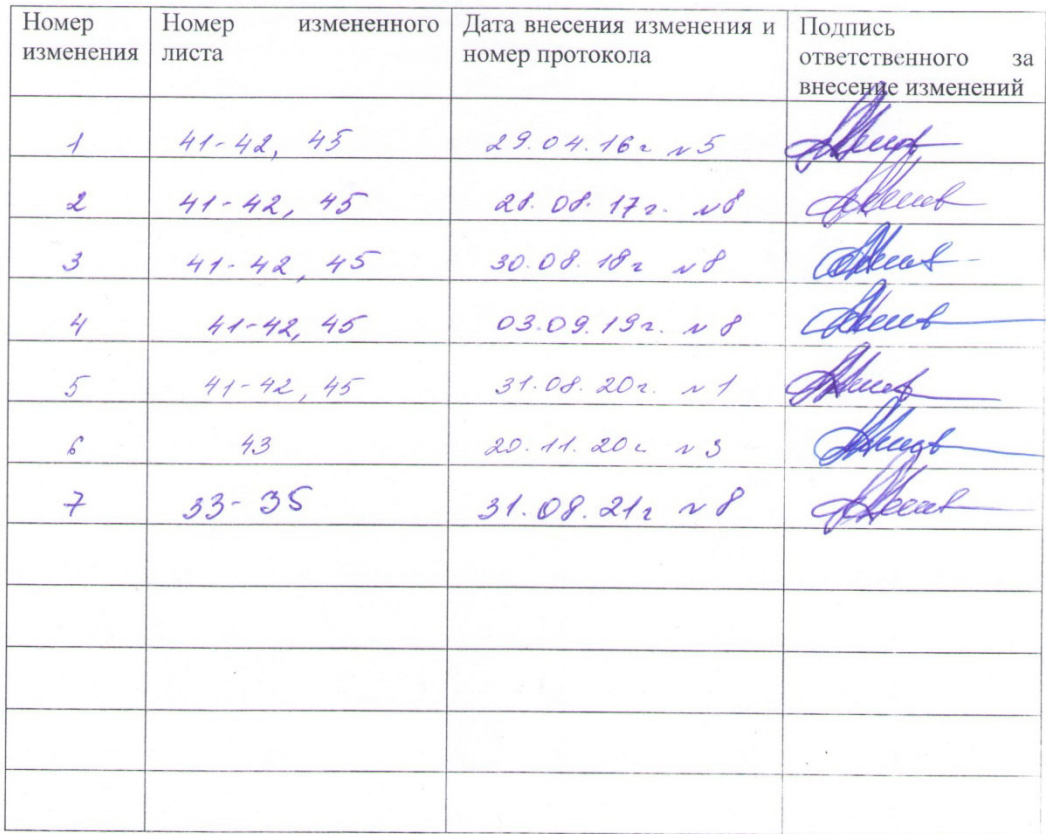 Номер изменения
Номер измененного листа
Дата внесения изменения и номер протокола
Подпись ответственного за внесение изменений
1 41-42, 45 29.04.16г №5
2 41-42, 45 28.08.17г. №8
3 41-42, 45 30.08.18г №8
4 41-42, 45 03.09.19г. №8
5 41-42, 45 31.08.20г. №1
6 43 20.11.20г №3
7 33-35 31.08.21г №8